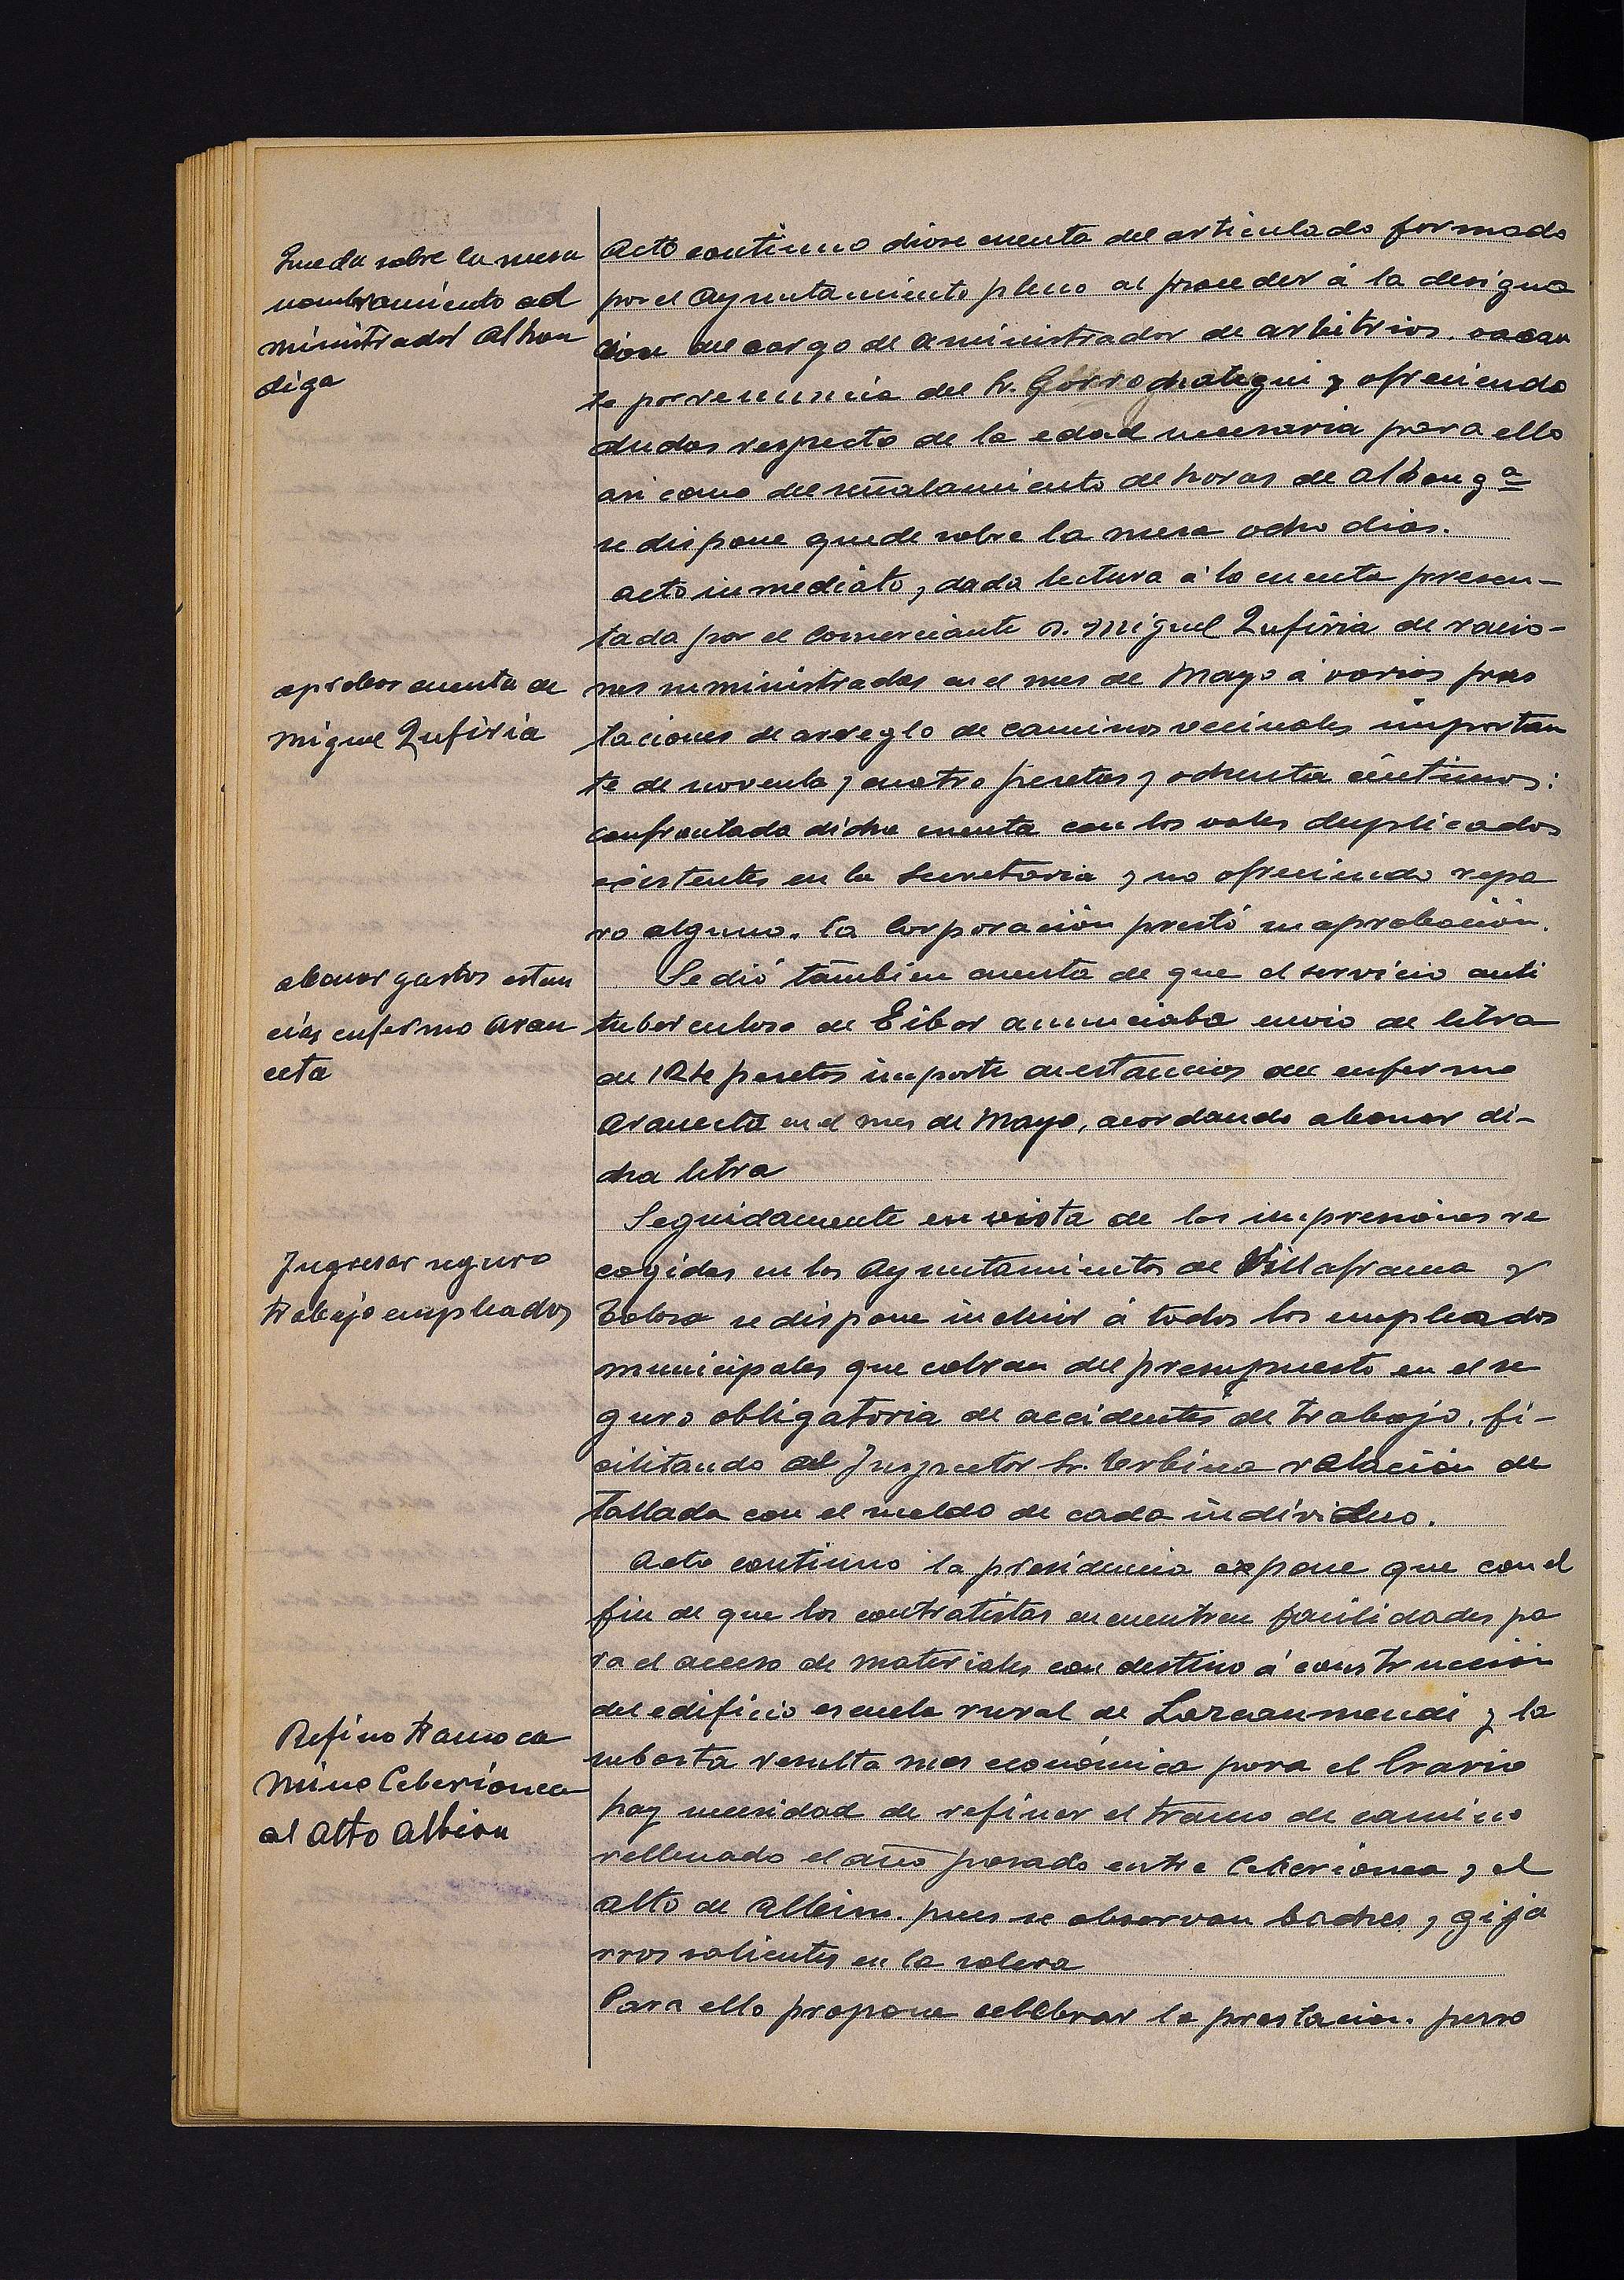 Queda sobre la mesa
nombramiento ad
ministrador Alhon
diga
Acto continuo diose cuenta del articulado formado
por el Ayuntamiento pleno al proceder á la designa
cion del cargo de aministrador de arbitrios, vacan
te por renuncia del Sr. Gorrochategui y ofreciendo
dudas respecto de la edad necesaria para ello
asi como del señalamiento de horas de alhongª
se dispone quede sobre la mesa ocho dias.
acto inmediato, dada lectura á la cuenta presen-
tada por el Comerciante D. Miguel Zufiria de racio-
aprobar cuenta de
Miguel Zufiria
nes suministradas en el mes de Mayo á varios pres
taciones de arreglo de caminos vecinales importan
te de noventa y cuatro pesetas y ochenta céntimos:
confrontada dicha cuenta con los vales duplicados
existentes en la Secretaria y no ofreciendo repa
ro alguno. la Corporación prestó su aprobación.
abonar gastos estan
cias enfermo Aran
ceta
Se dió tambien cuenta de que el servicio anti
tuberculoso de Eibar anunciaba envio de letra
de 124 pesetas importe de estancias del enfermo
Aranceta en el mes de Mayo, acordando abonar di-
cha letra
Seguidamente en vista de las impresiones re
Ingresar seguro
trabajo empleados
cogidas en los Ayuntamientos de Villafranca y
Tolosa se dispone incluir á todos los empleados
municipales que cobran del presupuesto en el se
guro obligatoria de accidentes de trabajo, fi-
cilitando al Inspector Sr. Urbina relación de
tallada con el sueldo de cada individuo.
Acto continuo la presidencia expone que con el
fin de que los contratistas encuentren facilidades pa
ra el acceso de materiales con destino á construcción
del edificio escuela rural de Lazcaumendi y la
Refino tramo ca
mino Ceberionea
al Alto Albisu
subasta resulta mas económica para el Erario
hay necesidad de refinar el tramo de camino
rellenado el año pasado entre Ceberionea y el
alto de Albisu. pues se observan baches y gija
rros salientes en la solera
Para ello propone celebrar la prestacion. perso